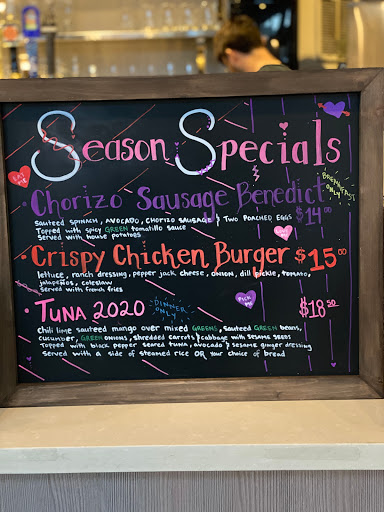 Season Specials
EAT ME
• Chorizo Sausage Benedict $14.00
BREAKFAST ONLY
Sauteed SPINACH, AVOCADO, CHORIZO SAUSAGE & TWO POACHED EGGS
Topped with spicy GREEN tomatillo sauce
Served with house potatoes
• Crispy Chicken Burger $15.00
lettuce, ranch dressing, pepper jack cheese, onion, dill pickle, tomato,
jalapeños, coleslaw
Served with french fries
• TUNA 2020 $18.50
DINNER ONLY
PICK ME
chili lime sauteed mango over mixed GREENS, sauteed GREEN beans,
cucumber, GREEN onions, shredded carrots & cabbage with sesame seeds
Topped with black pepper seared tuna, avocado & sesame ginger dressing
Served with a side of steamed rice OR your choice of bread